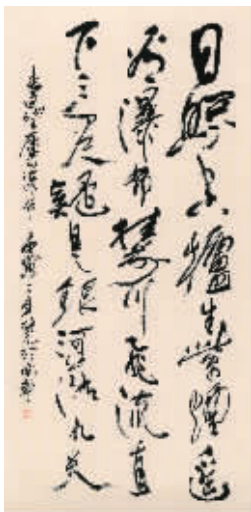 日照香爐生紫煙遙
看瀑布掛前川飛流直
下三千尺疑是銀河落九天
廬山瀑布